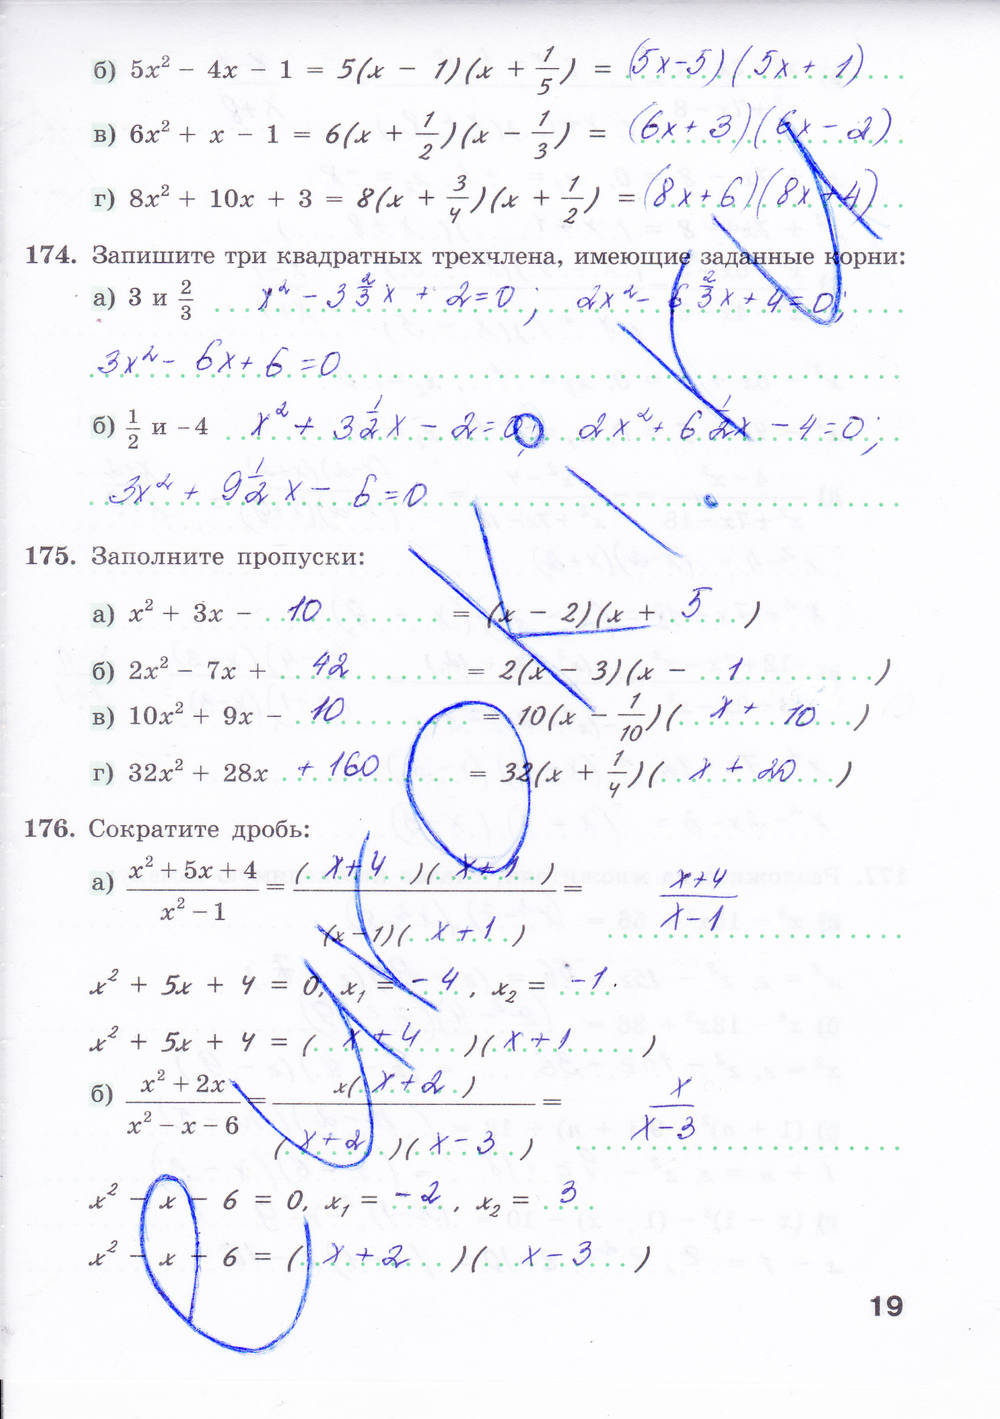 б) 5x² − 4x − 1 = 5(x − 1)(x + 1/5) = (5x−5)(5x + 1)
в) 6x² + x − 1 = 6(x + 1/2)(x − 1/3) = (6x+3)(6x−2)
г) 8x² + 10x + 3 = 8(x + 3/4)(x + 1/2) = (8x+6)(8x+4)
174. Запишите три квадратных трехчлена, имеющие заданные корни:
а) 3 и 2/3 x² − 3 2/3 x + 2=0; 2x² − 6 2/3 x + 4=0;
3x² − 6x + 6 = 0
б) 1/2 и −4 x² + 3 1/2 x − 2=0; 2x² + 6 1/2 x − 4=0;
3x² + 9 1/2 x − 6 = 0
175. Заполните пропуски:
а) x² + 3x − 10 = (x − 2)(x + 5)
б) 2x² − 7x + 42 = 2(x − 3)(x − 1)
в) 10x² + 9x − 10 = 10(x − 1/10)(x + 10)
г) 32x² + 28x + 160 = 32(x + 1/4)(x + 20)
176. Сократите дробь:
а) (x² + 5x + 4)/(x² − 1) = (x+4)(x+1)/(x−1)(x+1) = x+4/x−1
x² + 5x + 4 = 0, x₁ = −4, x₂ = −1.
x² + 5x + 4 = (x+4)(x+1)
б) (x² + 2x)/(x² − x − 6) = x(x+2)/(x+2)(x−3) = x/x−3
x² − x − 6 = 0, x₁ = −2, x₂ = 3
x² − x + 6 = (x+2)(x−3)
19